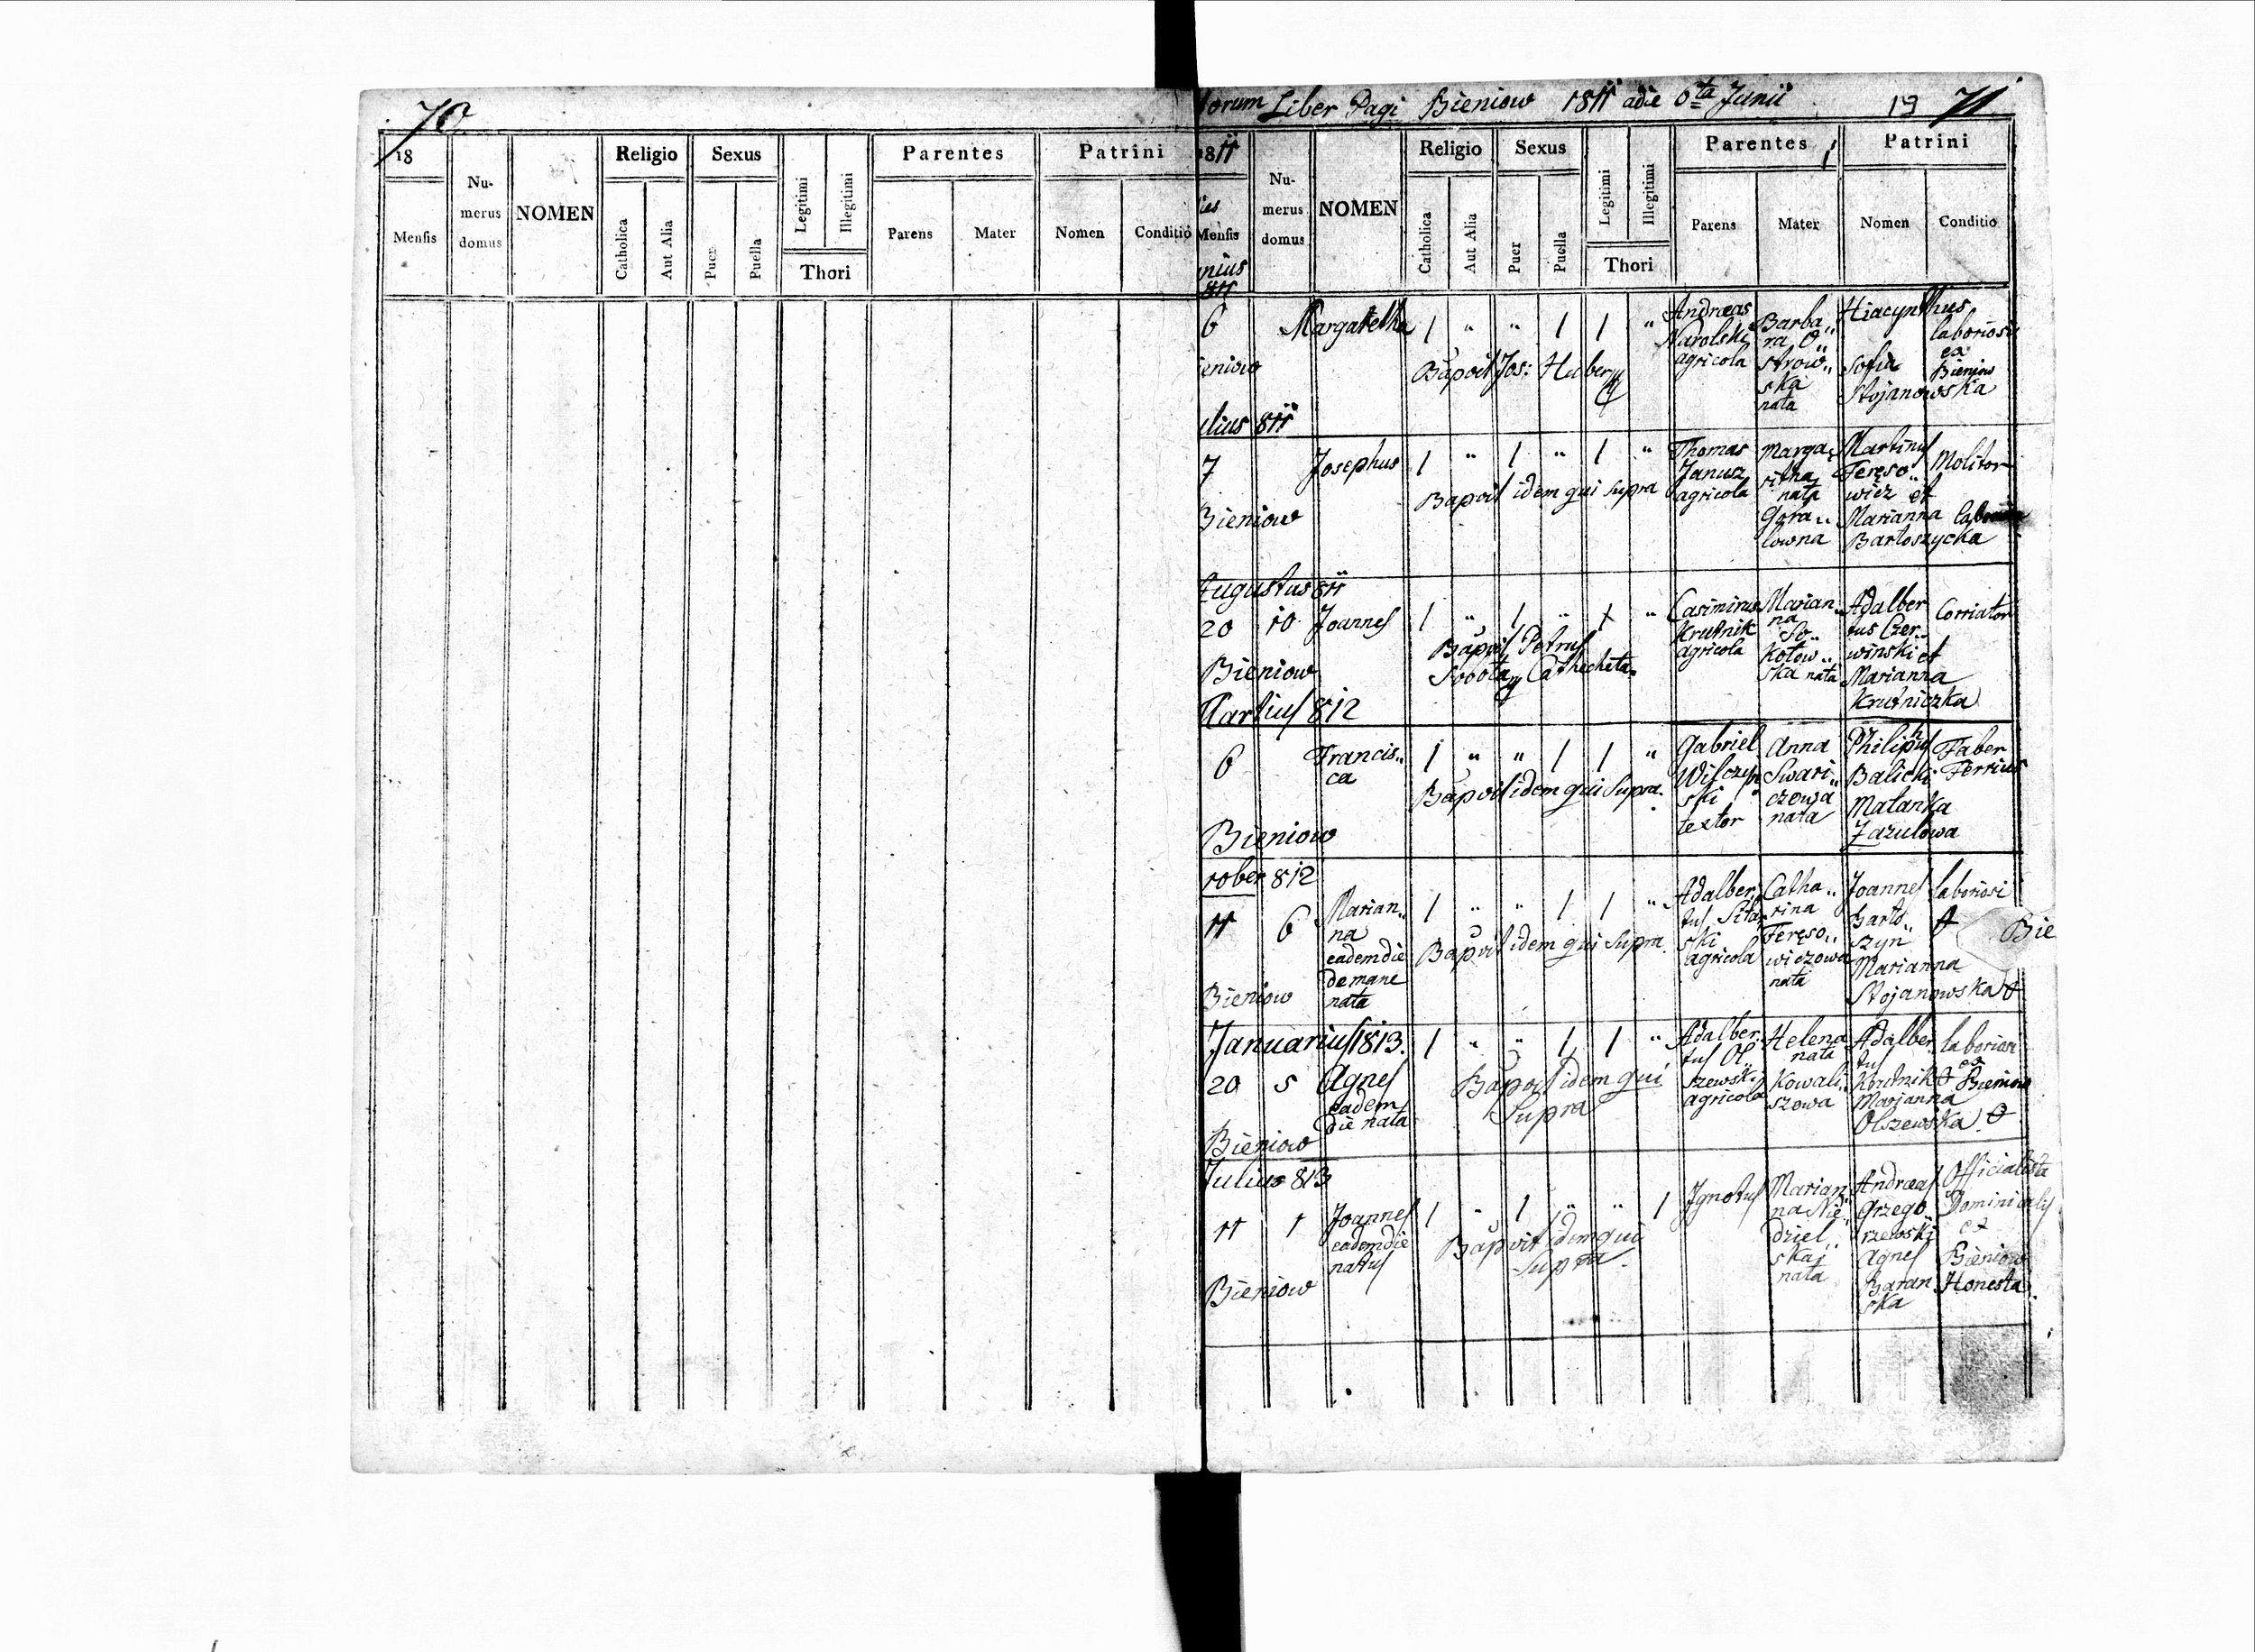 70
18
Mensis
Nu-
merus
domus
NOMEN
Religio
Catholica
Aut Alia
Sexus
Puer
Puella
Legitimi
Illegitimi
Thori
Parentes
Parens
Mater
Patrini
Nomen
Conditio
torum Liber Pagi Bieniow 1811 a die 6ta Junii 19 71
1811
ies
Mensis
nius
811
Nu-
merus
domus
NOMEN
Religio
Catholica
Aut Alia
Sexus
Puer
Puella
Legitimi
Illegitimi
Thori
Parentes
Parens
Mater
Patrini
Nomen
Conditio
6
eniow
Margaretha
1 " " 1 1 "
Bapvit Jos: Hubery
Andreas
Narolski
agricola
Barba"
ra O"
strow"
ska
nata
Hiacynthus
Sofia
Stojanowska
laboriosi
ex
Bieniow
ulius 811
7
Bieniow
Josephus
1 " 1 " 1 "
Bapvit idem qui supra
Thomas
Janusz
agricola
Marga"
ritha
nata
Gora"
lowna
Martinus
Fereso"
wicz et
Marianna
Bartoszycka
Molitor
Augustus 811
20 10 Joannes
Bieniow
1 " 1 " 1 "
Bapvit Petrus
Sobota Cathecheta
Casimirus
Krutnik
agricola
Marian"
na
So"
kotow"
ska nata
Adalber
tus Czer"
winski et
Marianna
Krutniczka
Corriator
Martius 812
6
Bieniow
Francis"
ca
1 " " 1 1 "
Bapvit idem qui supra.
Gabriel
Wilczyn
ski
textor
Anna
Swari"
czowa
nata
Philipus
Balicki
Malanka
Zazulowa
Faber
Ferrius
10ber 812
11 6
Bieniow
Marian"
na
eadem die
de mane
nata
1 " " 1 1 "
Bapvit idem qui supra
Adalber"
tus Sita
ski
agricola
Catha"
rina
Fereso"
wiczowa
nata
Joannes
Barto"
szyn
Marianna
Stojanowska
laboriosi
Bie
Januarius 1813.
20 5 Agnes
eadem
die nata
Bieniow
1 " " 1 1 "
Bapvit idem qui
supra
Adalber"
tus Ol"
szewski
agricola
Helena
nata
Kowali"
szowa
Adalber
tus
Krutnik
Marianna
Olszewska
laboriosi
ex
Bieniow
Julius 813
11 1
Bieniow
Joannes
eadem die
natus
1 " 1 " " 1
Bapvit idem qui
supra.
Ignotus
Marian"
na Nie"
dziel"
ska
nata
Andreas
Grzego"
rzewski
Agnes
Baran
ska
Officialista
Dominicalis
ex
Bieniow
Honesta.